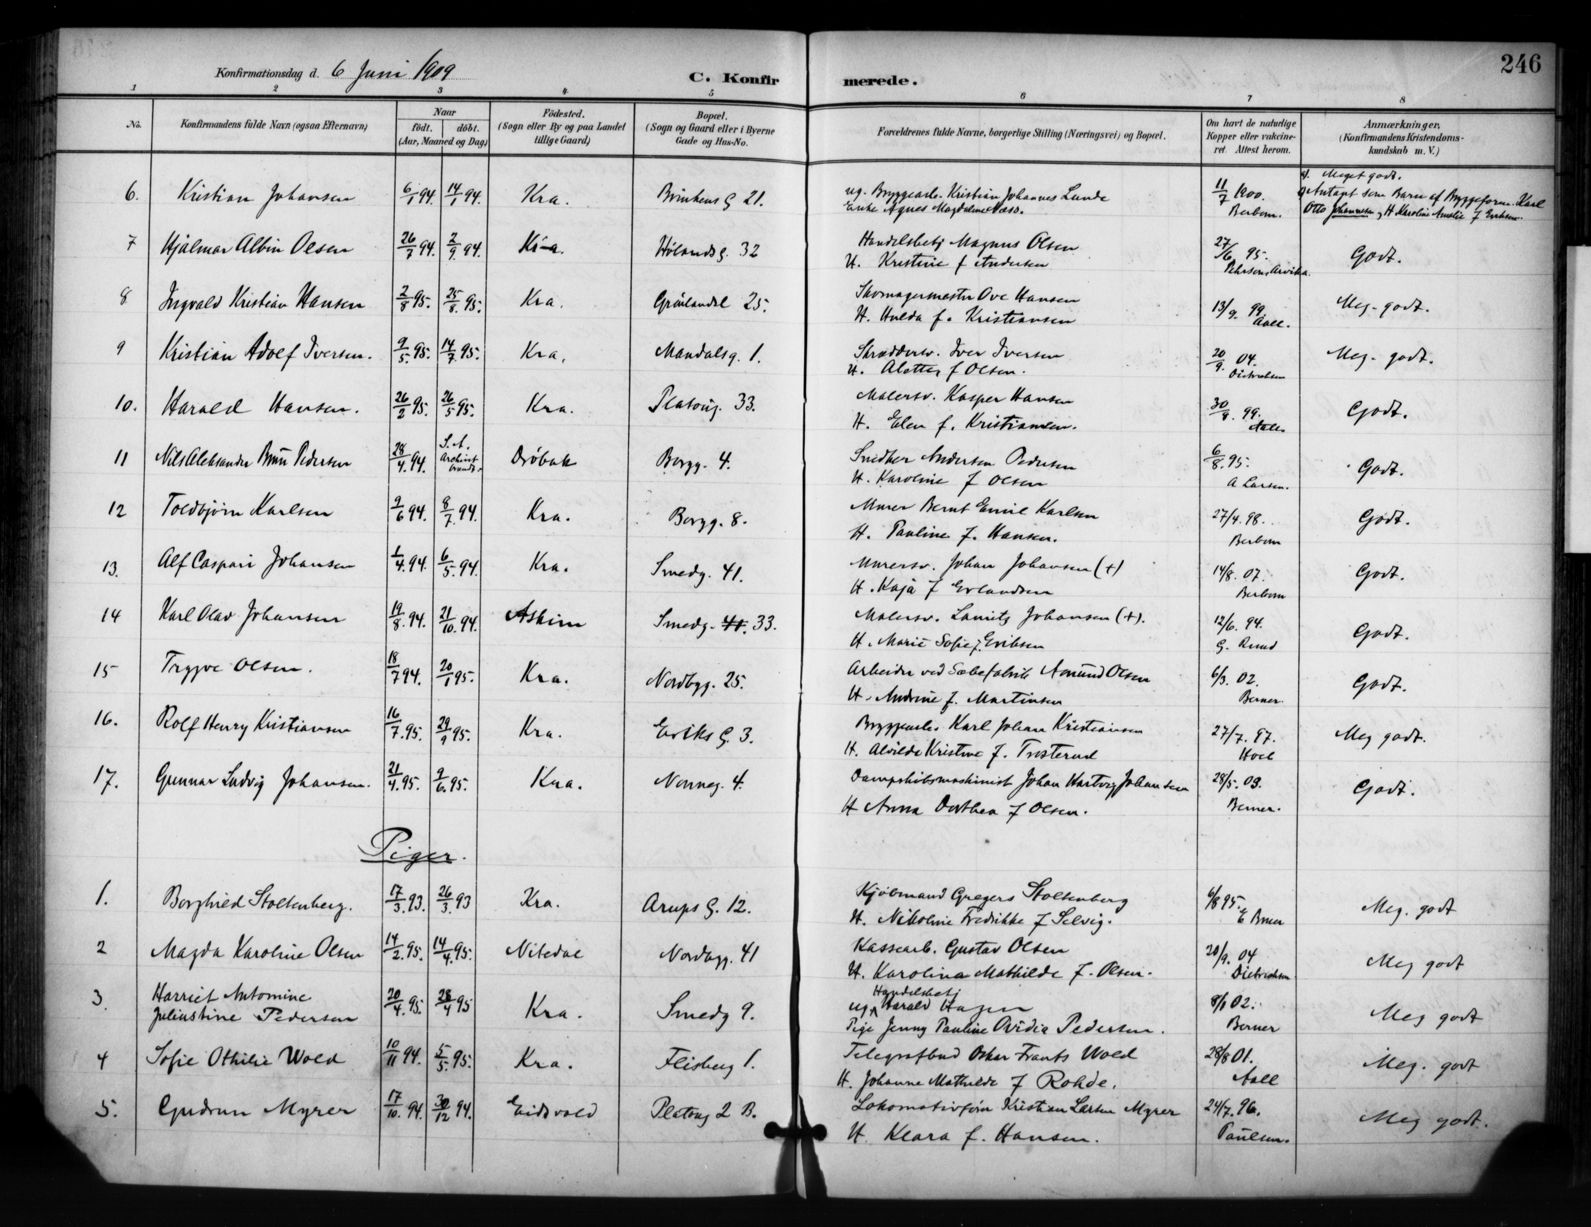 246
Konfirmationsdag d. 6 Juni 1909
C. Konfirmerede.
1 2 3 4 5 6 7 8
No. Konfirmandens fulde Navn (ogsaa Efternavn) Naar født. døbt. (Aar, Maaned og Dag) Fødested. (Sogn eller By og paa Landet tillige Gaard) Bopæl. (Sogn og Gaard eller i Byerne Gade og Hus-No. Forældrenes fulde Navne, borgerlige Stilling (Næringsvei) og Bopæl. Om havt de naturlige Kopper eller vaccineret. Attest herom. Anmærkninger. (Konfirmandens Kristendomskundskab m. V.)
6. Kristian Johansen 6/1 94. 14/1 94. Kra. Brinkens G 21. ug. Bryggearb. Kristian Johannes Lunde 11/7 1900. Meget godt.
Enke Agnes Magdalene Næss. Berbom. Antaget som Barn af Bryggeform. Karl
Otto Johannesen og H. Karoline Amalie f Eriksen.
7 Hjalmar Albin Olsen 26/7 94. 2/9 94. Kra Hølandsg. 32 Handelsbetj Magnus Olsen 27/6 95. Godt.
H. Kristine f Andersen Arvika.
8 Ingvald Kristian Hansen 2/8 95. 25/8 95. Kra. Grønlandsl 25. Skomagermester Ove Hansen 13/9. 99. Meg. godt.
H. Hulda f. Kristiansen Aall.
9 Kristian Adolf Iversen. 9/5 95. 14/7 95. Kra. Mandalsg. 1. Skræddersv. Iver Iversen 20/9. 04. Meg. godt.
H. f Olsen. Dietrichsen
10. Harald Hansen. 26/2 95. 26/5 95. Kra. Platoug. 33. Malersv. Kasper Hansen 30/8. 99. Godt.
H. Elen f. Kristiansen. Aall
11 Nils Aleksander Bruu Pedersen 28/4. 94. S. A. Drøbak Borgg. 4. Snedker Andersen Pedersen 6/8. 95. Godt.
H. Karoline f Olsen A Larsen.
12 Toldbjørn Karlsen 9/6 94. 8/7 94. Kra. Borgg. 8. Murer Bernt Emil Karlsen 27/4. 98. Godt.
H. Pauline f. Hansen. Berbom
13. Alf Caspari Johansen 1/4. 94. 6/5. 94. Kra. Smedg. 41. Murersv. Johan Johansen (+) 14/8. 07. Godt.
H. Kaja f Erlandsen Berbom
14 Karl Olav Johansen 19/8. 94. 21/10. 94. Askim Smedg. 41. 33. Malersv. Lauritz Johansen (+). 12/6. 94. Godt.
H. Marie Sofie f. Eriksen G. Ruud
15 Trygve Olsen. 18/7 94. 20/1 95. Kra. Nordbyg. 25. Arbeider ved Sæbefabrik Amund Olsen 6/3. 02. Godt.
H. Andrine f. Martinsen Berner.
16. Rolf Henry Kristiansen 16/7. 95. 29/9 95. Kra. Eriks G. 3. Bryggearb. Karl Johan Kristiansen 27/7. 97. Meg godt.
H. Alvilde Kristine f. Trosterud Hoel
17. Gunnar Ludvig Johansen. 21/4. 95. 9/6. 95. Kra. Norneg. 4. Dampskibsmaskinist Johan Hartvig Johansen 28/5. 09. Godt.
H Anna Dorthea f Olsen. Berner.
Piger.
1. Borghild Stoltenberg. 17/3. 93. 26/3. 93 Kra. Arups G. 12. Kjøbmand Gregers Stoltenberg 6/8 95. Meg. godt
H. Nikoline Fredrikke f Selvig.
2 Magda Karoline Olsen 14/2. 95. 14/4. 95. Nitedal Nordbyg. 41 Kassearb. Gustav Olsen 20/9. 04 Meg godt
H. Karolina Mathilde f. Olsen. Dietrichsen
3. Harriet Antomine 20/4. 95. 28/4 95 Kra. Smedg 9. ug. Handelsbetj Harald Hagen 9/1 02. Meg godt
Juliustine Pedersen Pige Jenny Pauline Ovidia Pedersen. Berner
4 Sofie Othilie Wold 10/11 94. 5/5. 95. Kra. Flisberg 1. Telegrafbud Oskar Frants Wold 28/8 01. Meg. godt
H. Johanne Mathilde f Rohde. Aall
5. Gudrun Myrer 17/10. 94. 30/12 94. Eidsvold Platoug 2 B. Lokomotivform Kristian Larsen Myrer 24/7. 96. Meg godt.
H. Klara f. Hansen. Paulsen.